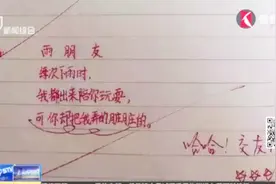 新闻综合
雨朋友
每次下雨时，
我都出来陪你玩耍，
可你却把我弄的脏脏的。
哈哈！交友